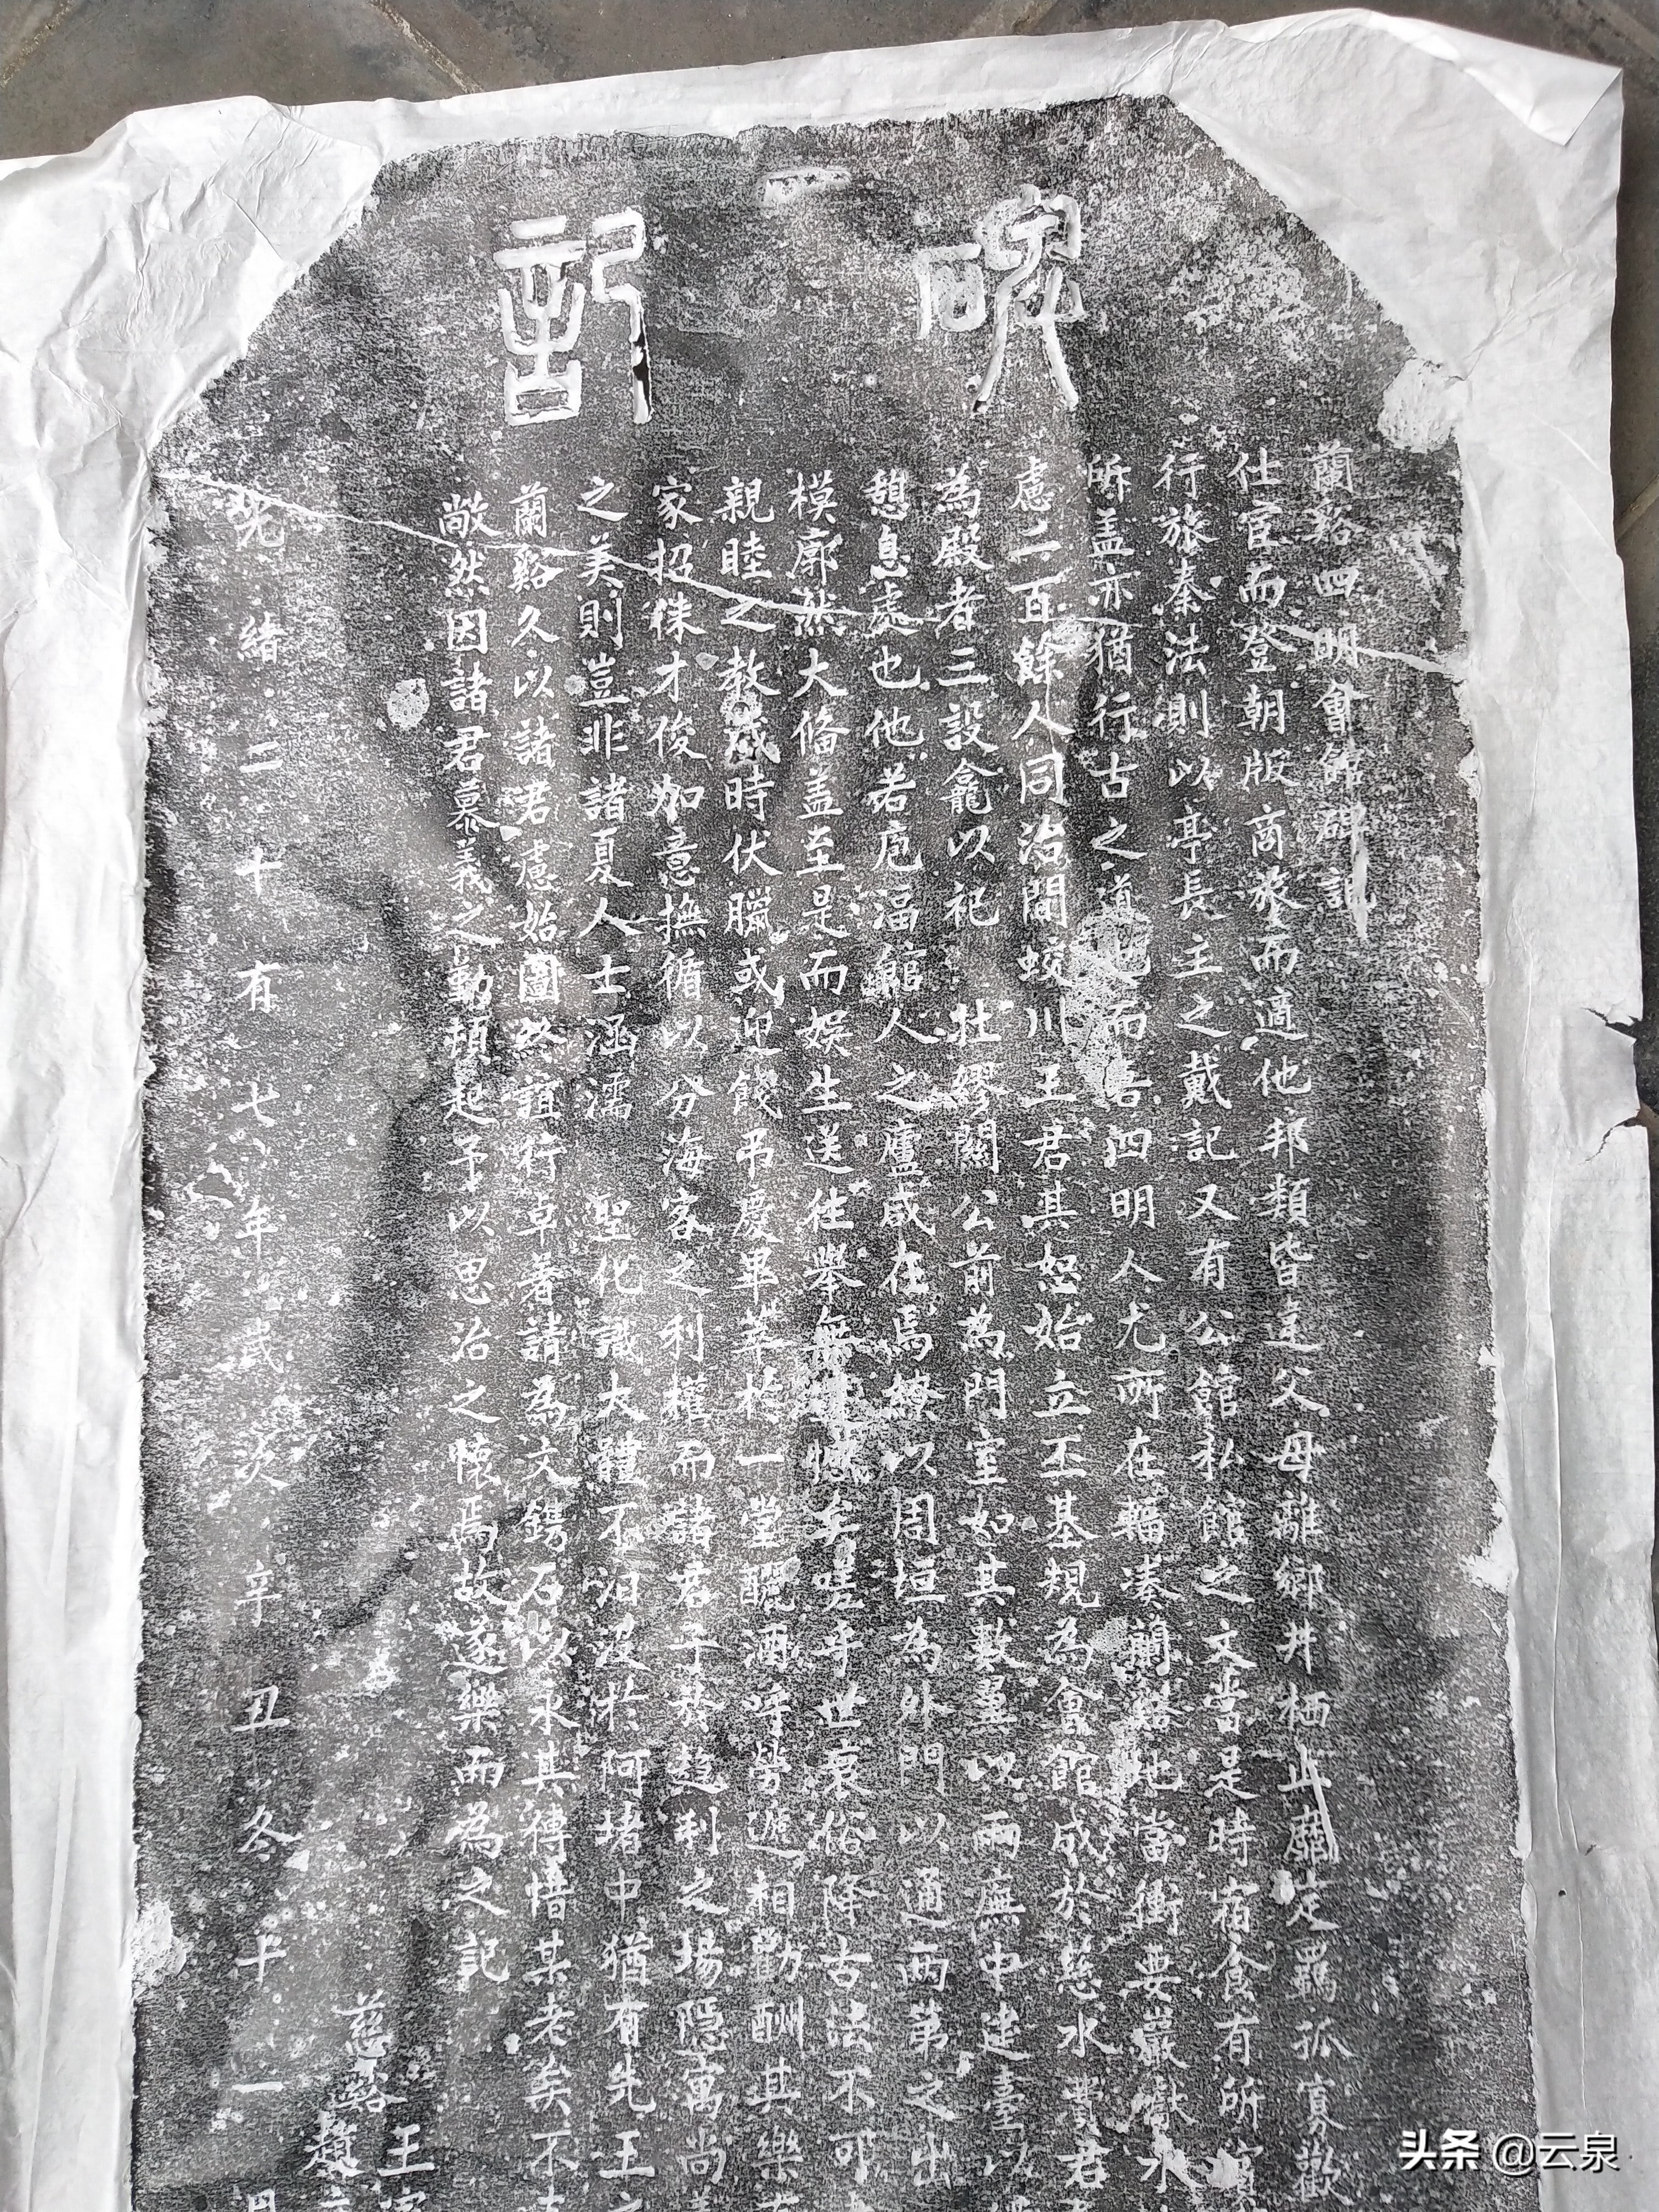 碑記
蘭谿四明會館碑記
仕宦而登朝版商旅而適他邦類皆違父母離鄉井栖止靡定羈孤寡歡
行旅秦法則以亭長主之戴記又有公館私館之文當是時宿食有所
所蓋亦猶行古之道也而吾四明人尤所在輻湊蘭谿地當衝要嚴
慮二百餘人同治間蛟川王君其恕始立丕基規為會館成於慈水 君
為殿者三設龕以祀 壯繆關公前為門室如其數翼以兩廡中建臺以
憩息處也他若庖湢館人之廬咸在焉繚以周垣為外門以通兩第之出
模廓然大備蓋至是而娛生送往舉無 憾矣嗟乎世衰俗降古法不可
親睦之教歲時伏臘或迎餞弔慶畢萃於一堂釃酒呼勞遞相勸酬其樂
家招徠才俊加意撫循以分海客之利權而諸君子於趨利之場隱寓尚
之美則豈非諸夏人士涵濡 聖化識大體不汩沒於阿堵中猶有先王
蘭谿久以諸君慮始圖終誼行卓著請為文鐫石以永其傳惜某老矣不
敞然因諸君慕義之勤頓起予以思治之懷焉故遂樂而為之記
慈谿王
趙
光緒二十有七年歲次辛丑冬十一月
头条 @云泉